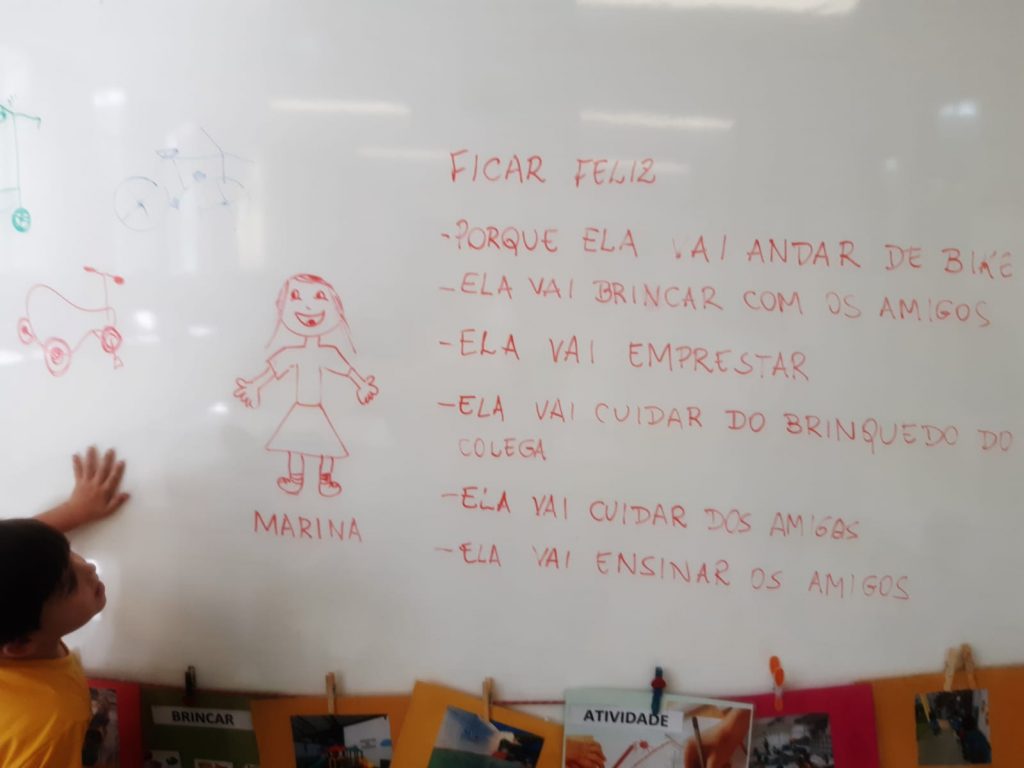 FICAR FELIZ
-PORQUE ELA VAI ANDAR DE BIKE
-ELA VAI BRINCAR COM OS AMIGOS
-ELA VAI EMPRESTAR
-ELA VAI CUIDAR DO BRINQUEDO DO
COLEGA
-ELA VAI CUIDAR DOS AMIGOS
-ELA VAI ENSINAR OS AMIGOS
MARINA
BRINCAR
ATIVIDADE